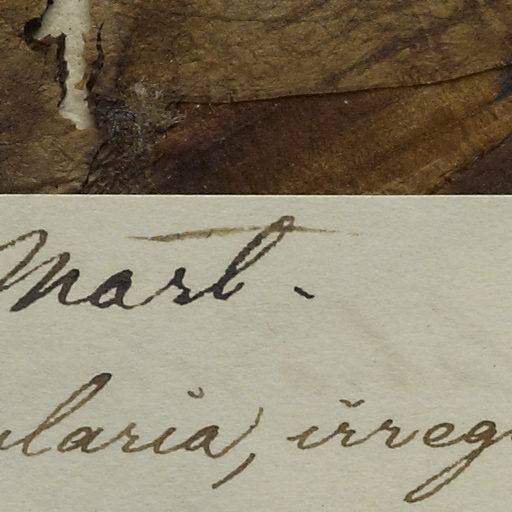 Mart.
ularia, irreg